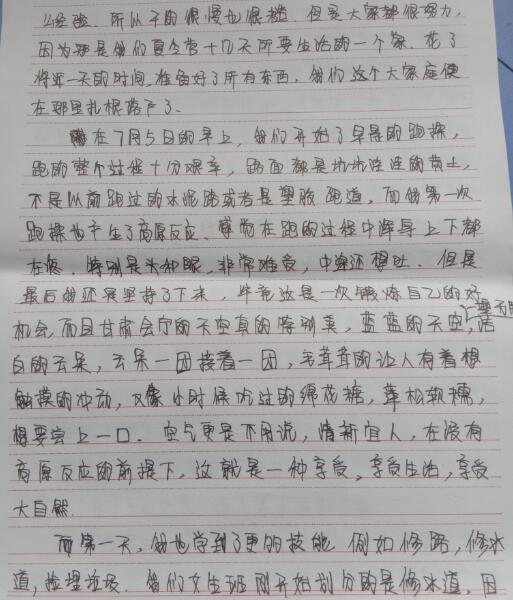 么经验，所以干的很慢也很糙。但是大家都很努力，
因为那是我们夏令营十几天所要生活的一个家。花了
将近一天的时间，准备好了所有东西，我们这个大家庭便
在那里扎根落户了。
在7月5日的早上，我们开始了早晨的跑操，
跑的整个过程十分艰辛，路面都是坑坑洼洼的黄土，
不是以前跑过的水泥路或者是塑胶跑道，而我第一次
跑操也产生了高原反应、感觉在跑的过程中浑身上下都
在疼，特别是头和眼，非常难受，中途还想吐。但是
最后我还是坚持了下来，毕竟这是一次锻炼自己的好
机会，而且甘肃会宁的天空真的特别美，蓝蓝的天空，洁
白的云朵，云朵一团接着一团，毛茸茸的让人有着想
触摸的冲动，又像小时候吃过的绵花糖，蓬松软糯，
想要尝上一口。空气更是不用说，清新宜人，在没有
高原反应的前提下，这就是一种享受，享受生活，享受
大自然。
而第一天，我也学到了更的技能 例如修路，修水
道，捡埋垃圾。我们女生班刚开始划分的是修水道，因